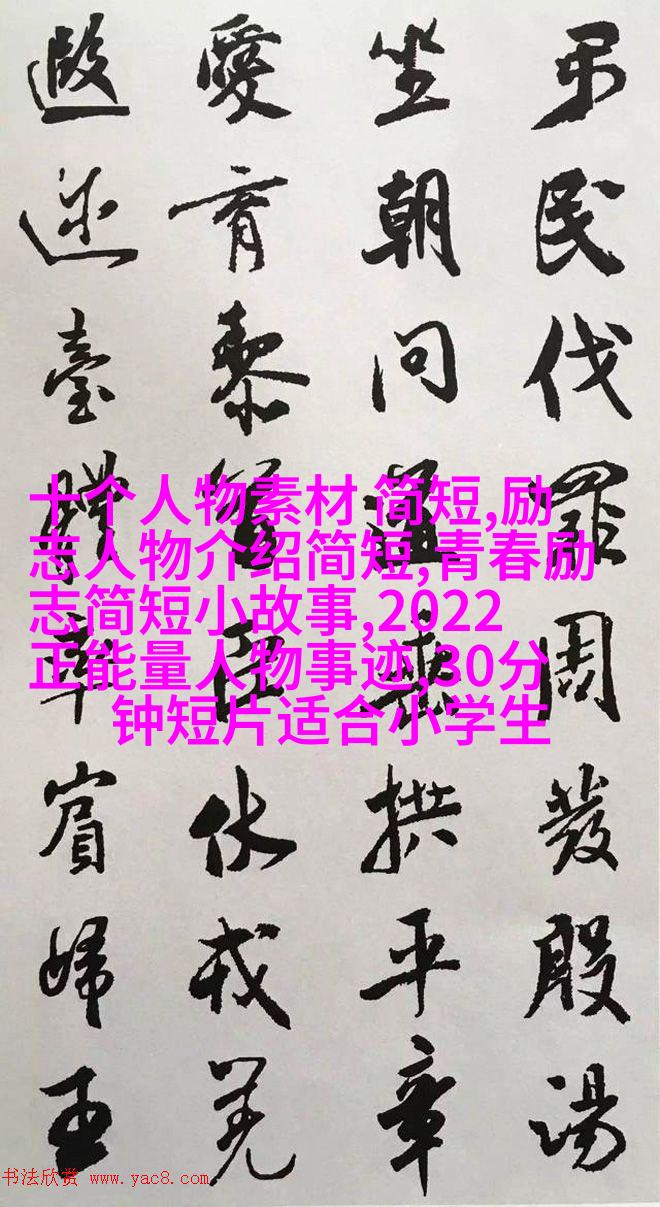 弔民伐罪周發殷湯
坐朝問道垂拱平章
愛育黎首臣伏戎羌
遐邇壹體率賓歸王
十个人物素材 简短,励
志人物介绍简短,青春励
志简短小故事,2022
正能量人物事迹,30分
钟短片适合小学生
书法欣赏 www.yac8.com